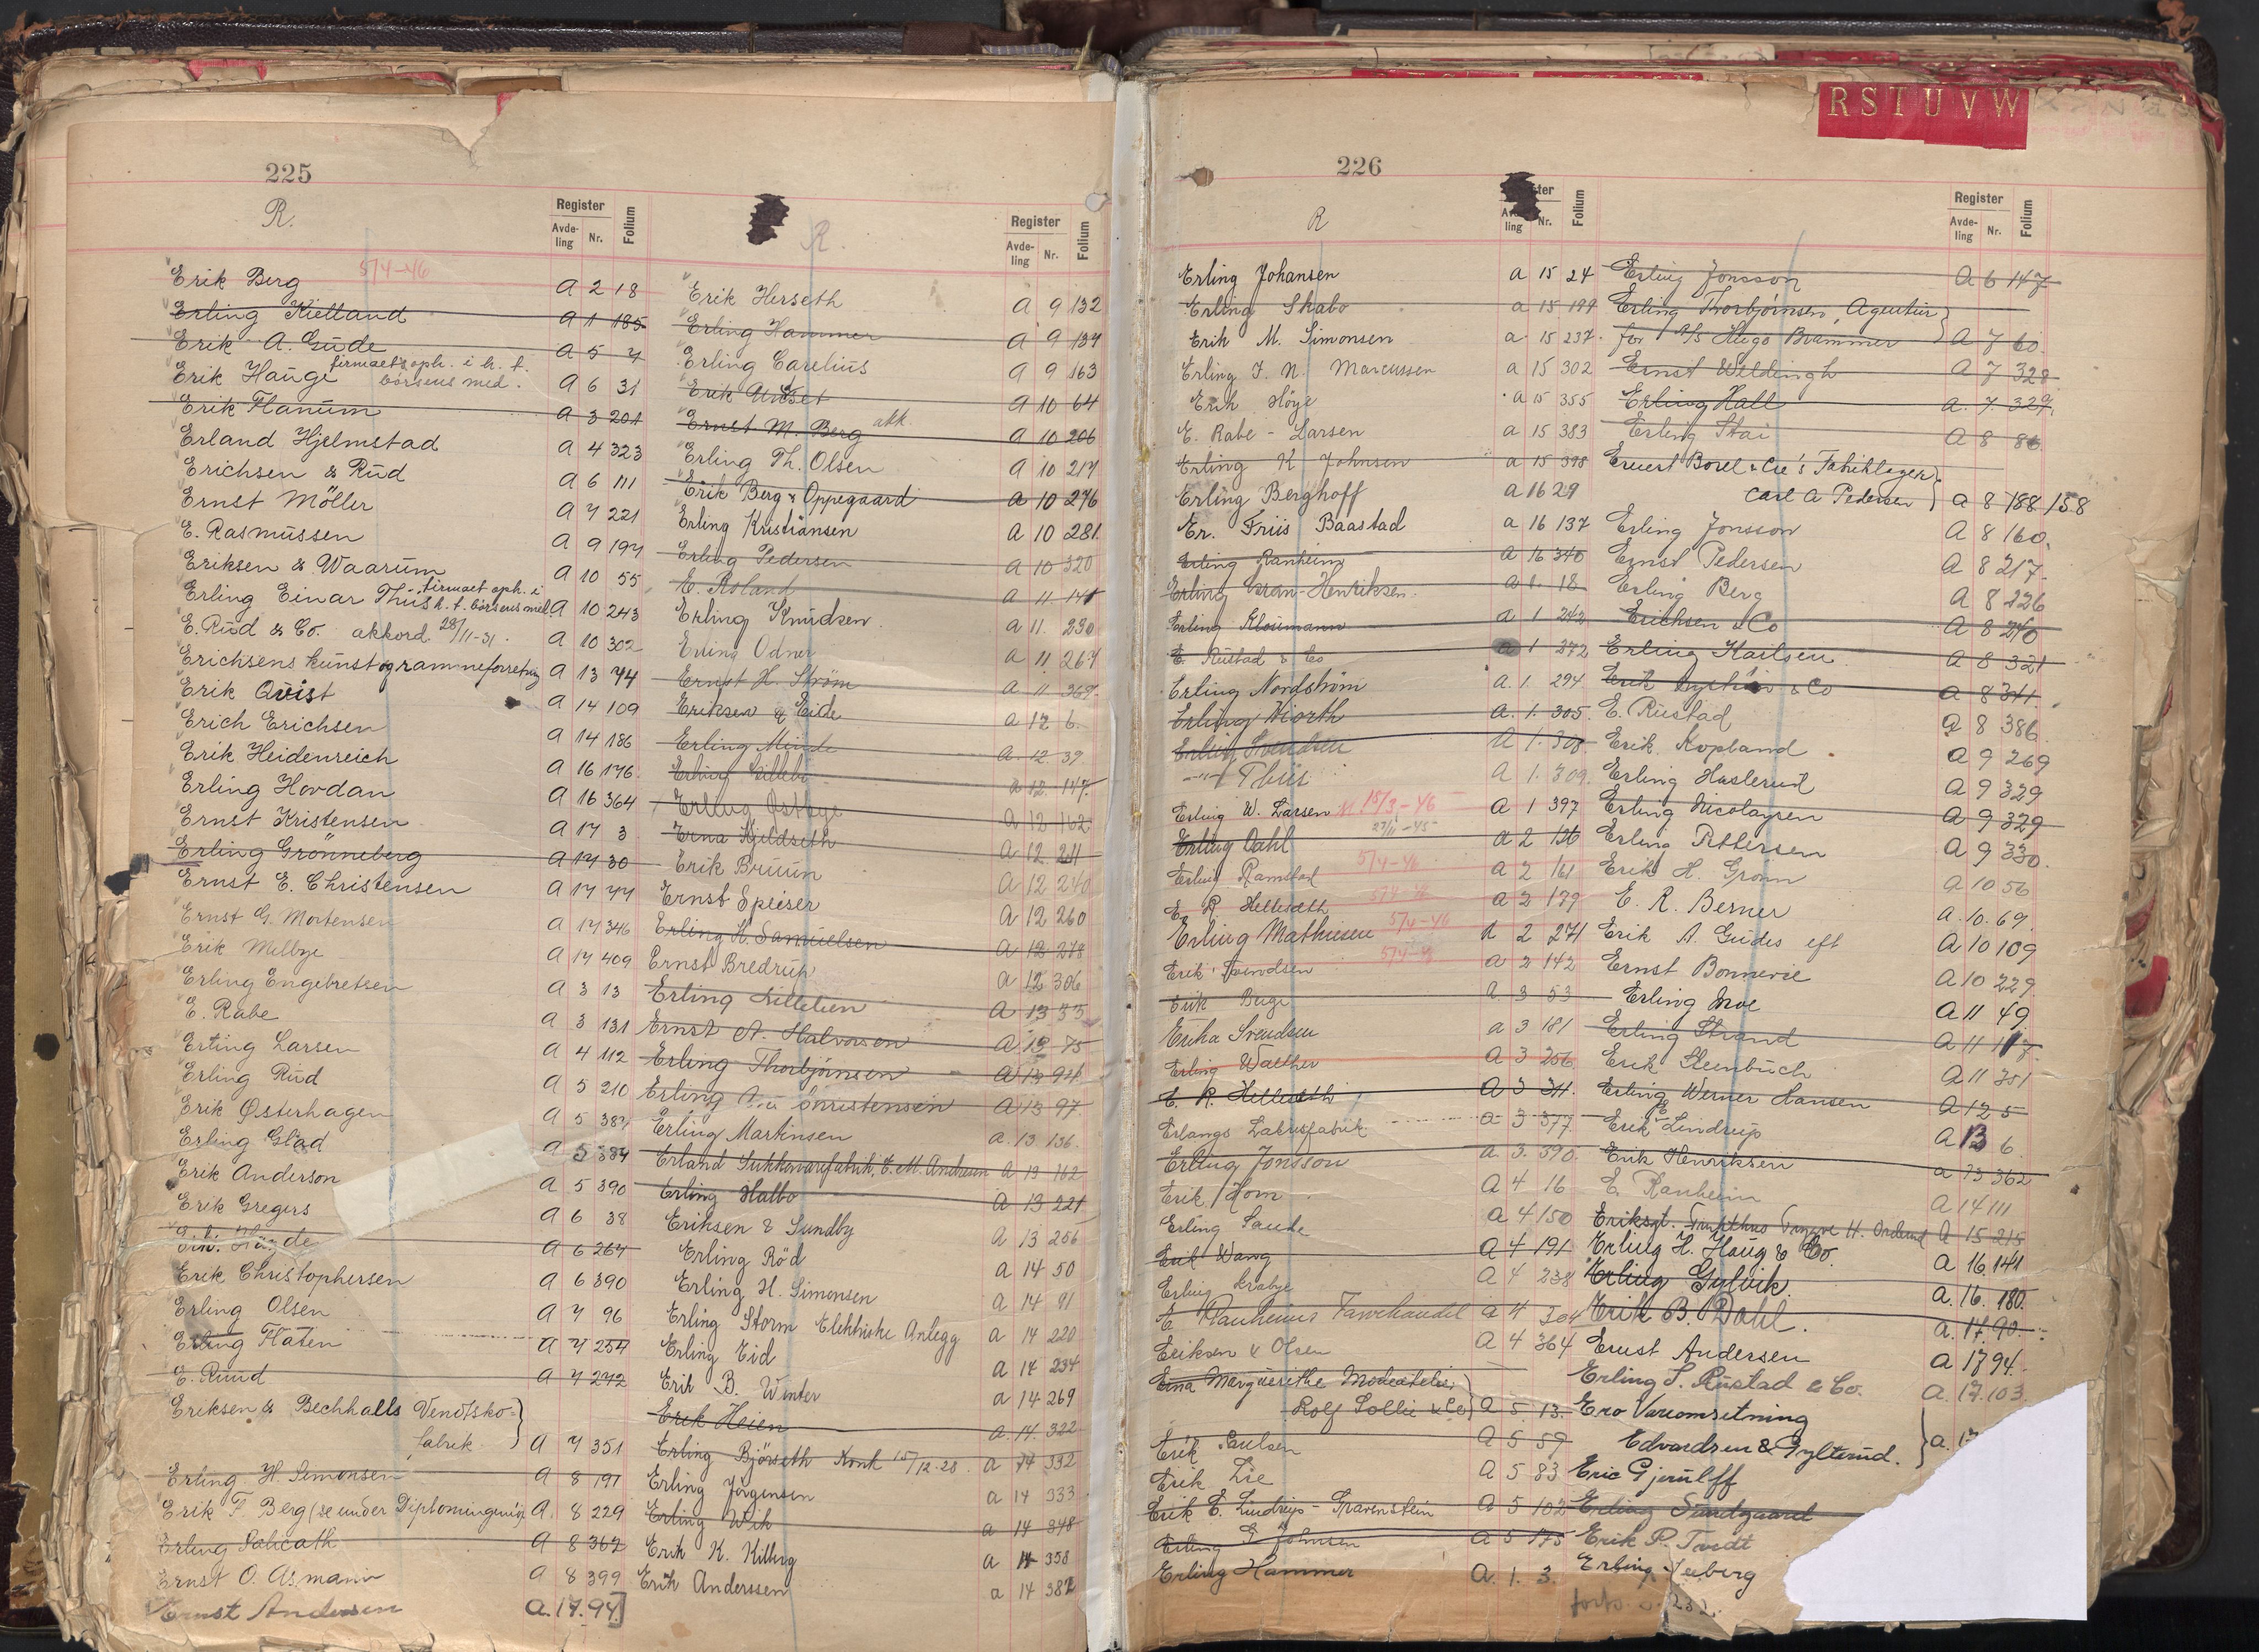 225
R.
Register
Avde-
ling
Nr.
Folium
5/4-46
Erik Berg A 2 18
Erling Kielland A 1 185
Erik A. Gude A 5 4
firmaet oph. i h. t.
Erik Hauge børsens med. A 6 31
Erik Flanum A 3 201
Erland Hjelmstad A 4 323
Erichsen & Rud A 6 111
Ernst Möller A 7 221
E. Rasmussen A 9 197
Eriksen & Waarum A 10 55
firmaet oph. i
Erling Einar Thiis h. t. børsens med. A 10 243
E. Rud & Co. akkord 28/11-31. A 10 302
Erichsens kunst og rammeforretng A 13 74
Erik Qvist A 14 109
Erich Erichsen A 14 186
Erik Heidenreich A 16 176
Erling Hovdan A 16 364
Ernst Kristensen A 17 3
Erling Grönneberg A 17 30
Ernst E. Christensen A 17 77
Ernst G. Mortensen A 17 346
Erik Melbye A 17 409
Erling Engebretsen A 3 13
E. Rabe A 3 131
Erling Larsen A 4 112
Erling Rud A 5 210
Erik Østerhagen A 5 387
Erling Glad A 5 384
Erik Anderson A 5 390
Erik Gregers A 6 38
A 6 264
Erik Christophersen A 6 390
Erling Olsen A 7 96
Erling Flaten A 7 254
E. Ruud A 7 272
Eriksen & Bechhalls Vendsko-
fabrik A 7 351
Erling H. Simonsen A 8 191
Erik F. Berg (se under Diplomingeniør A. 8 229
Erling A 8 362
Ernst O. Asmann A 8 399
Ernst Andersen A. 17. 94.
R.
Register
Avde-
ling
Nr.
Folium
Erik Herseth A 9 132
Erling Hammer A 9 134
Erling Carelius A 9 163
Erik Unset A 10 64
Ernst M. Berg akk. A 10 206
Erling Th. Olsen A 10 217
Erik Berg & Oppegaard A 10 276
Erling Kristiansen A 10 281
Erling Pedersen A 10 320
E. Roland A 11. 141
Erling Knudsen A 11. 230
Erling Odner A 11 267
Ernst H. Strøm A 11 367
Eriksen & Eide A 12 6
Erling Minde A 12 39
Erling Lillebo A 12 147
Erling Østbye A 12 162
Erna Kjeldseth A 12 211
Erik Bruun A 12 240
Ernst Speiser A 12 260
Erling H. Samuelsen A 12 278
Ernst Bredrup A 12 306
Erling Lillelien A 13 33
Ernst A. Halvorsen A 13 75
Erling Thorbjörnsen A 13 94
Erling Christensen A 13 97
Erling Martinsen A. 13 136
Erland Sukkervarefabrik, E. M. Andersen A 13 162
Erling Halbo A 13 221
Eriksen & Sundby A 13 256
Erling Röd A 14 50
Erling H. Simonsen A 14 91
Erling Storm Elektriske Anlegg A 14 220
Erling Eid A 14 234
Erik B. Winter A 14 269
Erik Heien A. 14. 322
Erling Björseth Konk 15/12-28. A 14 332
Erling Jörgensen A 14 333
Erling Wik A 14 348
Erik K. Killing A 14 358
Erik Anderssen A 14 382
226
R
ster
ling
Nr.
Folium
Erling Johansen A 15 24
Erling Skabo A 15 199
Erik M. Simonsen A 15 237
Erling I. N. Marcussen A 15 302
Erik Höye A 15 355
E. Rabe - Larsen A 15 383
Erling K Johnsen A 15 398
Erling Berghoff A 16 29
Er. Friis Baastad A 16 137
Erling Ranheim A 16 340
Erling Gran-Henriksen A 1. 18
Erling Kloumann A 1 242
E. Rustad & Co A 1 272
Erling Nordström A. 1. 294
Erling Kiorth A. 1. 305
Erling Svendsen A 1. 308
-"- Thiis A 1. 309
Erling W. Larsen 18/3-46 A 1 397
Erling Dahl 27/11-45 A 2 136
Erling Ramstad 5/4-46 A 2 161
E. R. Helleseth 5/4-46 A 2 179
Erling Mathiesen 5/4-46 A 2 271
Erik 5/4-46 A 2 142
Erik Berge A. 3 53
Erika Svendsen A 3 181
Erling Walther A 3 256
E. R. Helleseth A 3 311
Erlangs Lakrisfabrik A 3 377
Erling Jonsson A. 3. 390
Erik Horn A 4 16
Erling Saude A 4 150
Erik Wang A 4 191
Erling Kraby A 4 238
E Ranheims Farvehandel A 4 304
Eriksen & Olsen A 4 364
Erna Marguerithe Modeatelier
Rolf Sollie & Co A 5. 13.
Erik Paulsen A 5 59
Erik Lie A 5 83
Erik E. Lindrup - Gravenstein A 5 102
Erling E Johnsen A 5 175
Erling Hammer A. 1. 3.
R S T U V W
Register
Avde-
ling
Nr.
Folium
Erling Jonsson A 6 147
Erling Thorbjörnsen, Agentur
for A/S Hugo Brammer A 7 60
Ernst Weldingh A 7 328
Erling Hall A. 7. 329
Erling Stai A 8 86
Ernest Borel & Cie's Fabriklager
Carl A Pedersen A 8 188 158
Erling Jonsson A 8 160
Ernst Pedersen A 8 217
Erling Berg A 8 226
Erichsen & Co A 8 240
Erling Karlsen A 8 321
Erik & Co A 8 341
E. Rustad A 8 386
Erik Kopland A 9 269
Erling Haslerud A 9 329
Erling Nicolaysen A 9 329
Erling Pettersen A 9 330
Erik H. Gronn A 10 56
E. R. Berner A. 10. 69.
Erik A. Gudes eft A 10 109
Ernst Bonnevie A 10 229
Erling Moe A 11 49
Erling Strand A 11 117
Erik Steenbuch A 11 351
Erling Werner Hansen A 12 5
Erik Lindrup A 13 6
Erik Henriksen A 13 362
E. Ranheim A 14 111
Eriksgt. Frukthus Trygve H. Orderud A 15 215
Erling H. Haug & Co. A 16. 141
Erling Gylvik A. 16. 180
Erik B. Dahl. A. 17. 90.
Ernst Andersen A 17 94.
Erling S. Rustad & Co. A. 17. 103
Ero Vareomsetning
Edvardsen & Gylterud. A. 17
Eric Gjerulff
Erling Sandgaard
Erik P. Tvedt
Erling Seeberg
forts. s. 232.